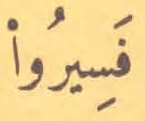 فَسِيرُواْ